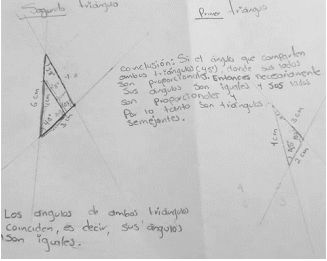 Segundo triángulo
Primer triángulo
conclusión: Si el ángulo que comparten
ambos triángulos (45°), donde sus lados
son proporcionales. Entonces necesariamente
Sus ángulos son iguales y sus lados
son proporcionales y
Por lo tanto son triángulos
semejantes.
6 cm
4 cm
3 cm
4 cm
2 cm
Los angulos de ambos triángulos
coinciden, es decir, sus ángulos
son iguales.